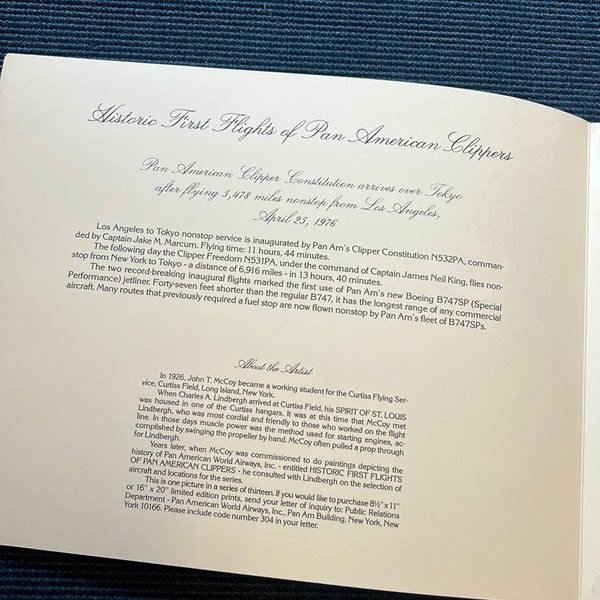 Historic First Flights of Pan American Clippers
Pan American Clipper Constitution arrives over Tokyo
after flying 5,478 miles nonstop from Los Angeles,
April 25, 1976
Los Angeles to Tokyo nonstop service is inaugurated by Pan Am's Clipper Constitution N532PA, comman-
ded by Captain Jake M. Marcum. Flying time: 11 hours, 44 minutes.
The following day the Clipper Freedom N531PA, under the command of Captain James Neil King, flies non-
stop from New York to Tokyo - a distance of 6,916 miles - in 13 hours, 40 minutes.
The two record-breaking inaugural flights marked the first use of Pan Am's new Boeing B747SP (Special
Performance) jetliner. Forty-seven feet shorter than the regular B747, it has the longest range of any commercial
aircraft. Many routes that previously required a fuel stop are now flown nonstop by Pan Am's fleet of B747SPs.
About the Artist
In 1926, John T. McCoy became a working student for the Curtiss Flying Ser-
vice, Curtiss Field, Long Island, New York.
When Charles A. Lindbergh arrived at Curtiss Field, his SPIRIT OF ST. LOUIS
was housed in one of the Curtiss hangars. It was at this time that McCoy met
Lindbergh, who was most cordial and friendly to those who worked on the flight
line. In those days muscle power was the method used for starting engines, ac-
complished by swinging the propeller by hand. McCoy often pulled a prop through
for Lindbergh.
Years later, when McCoy was commissioned to do paintings depicting the
history of Pan American World Airways, Inc. - entitled HISTORIC FIRST FLIGHTS
OF PAN AMERICAN CLIPPERS - he consulted with Lindbergh on the selection of
aircraft and locations for the series.
This is one picture in a series of thirteen. If you would like to purchase 8½" x 11"
or 16" x 20" limited edition prints, send your letter of inquiry to: Public Relations
Department - Pan American World Airways, Inc., Pan Am Building, New York, New
York 10166. Please include code number 304 in your letter.